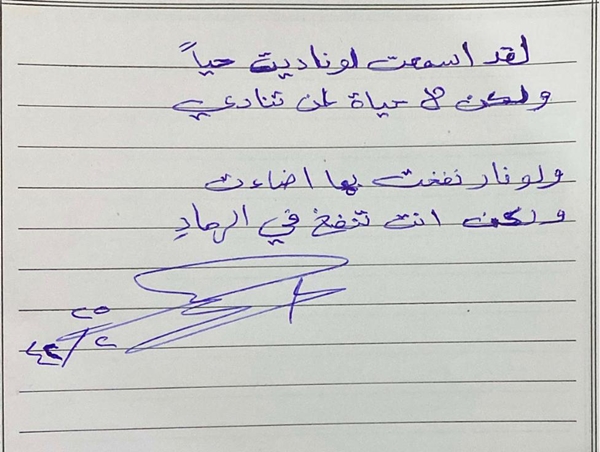 لقد اسمعت لو ناديت حياً
ولكن لا حياة لمن تنادي
ولو نار نفخت بها اضاءت
ولكن انت تنفخ في الرمادِ